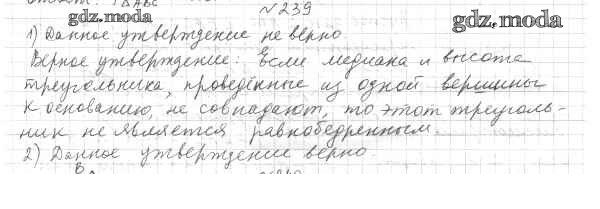 № 239
gdz.moda
gdz.moda
1) Данное утверждение не верно
Верное утверждение: Если медиана и высота
треугольника, проведённые из одной вершины
к основанию, не совпадают, то этот треуголь-
ник не является равнобедренным.
2) Данное утверждение верно.